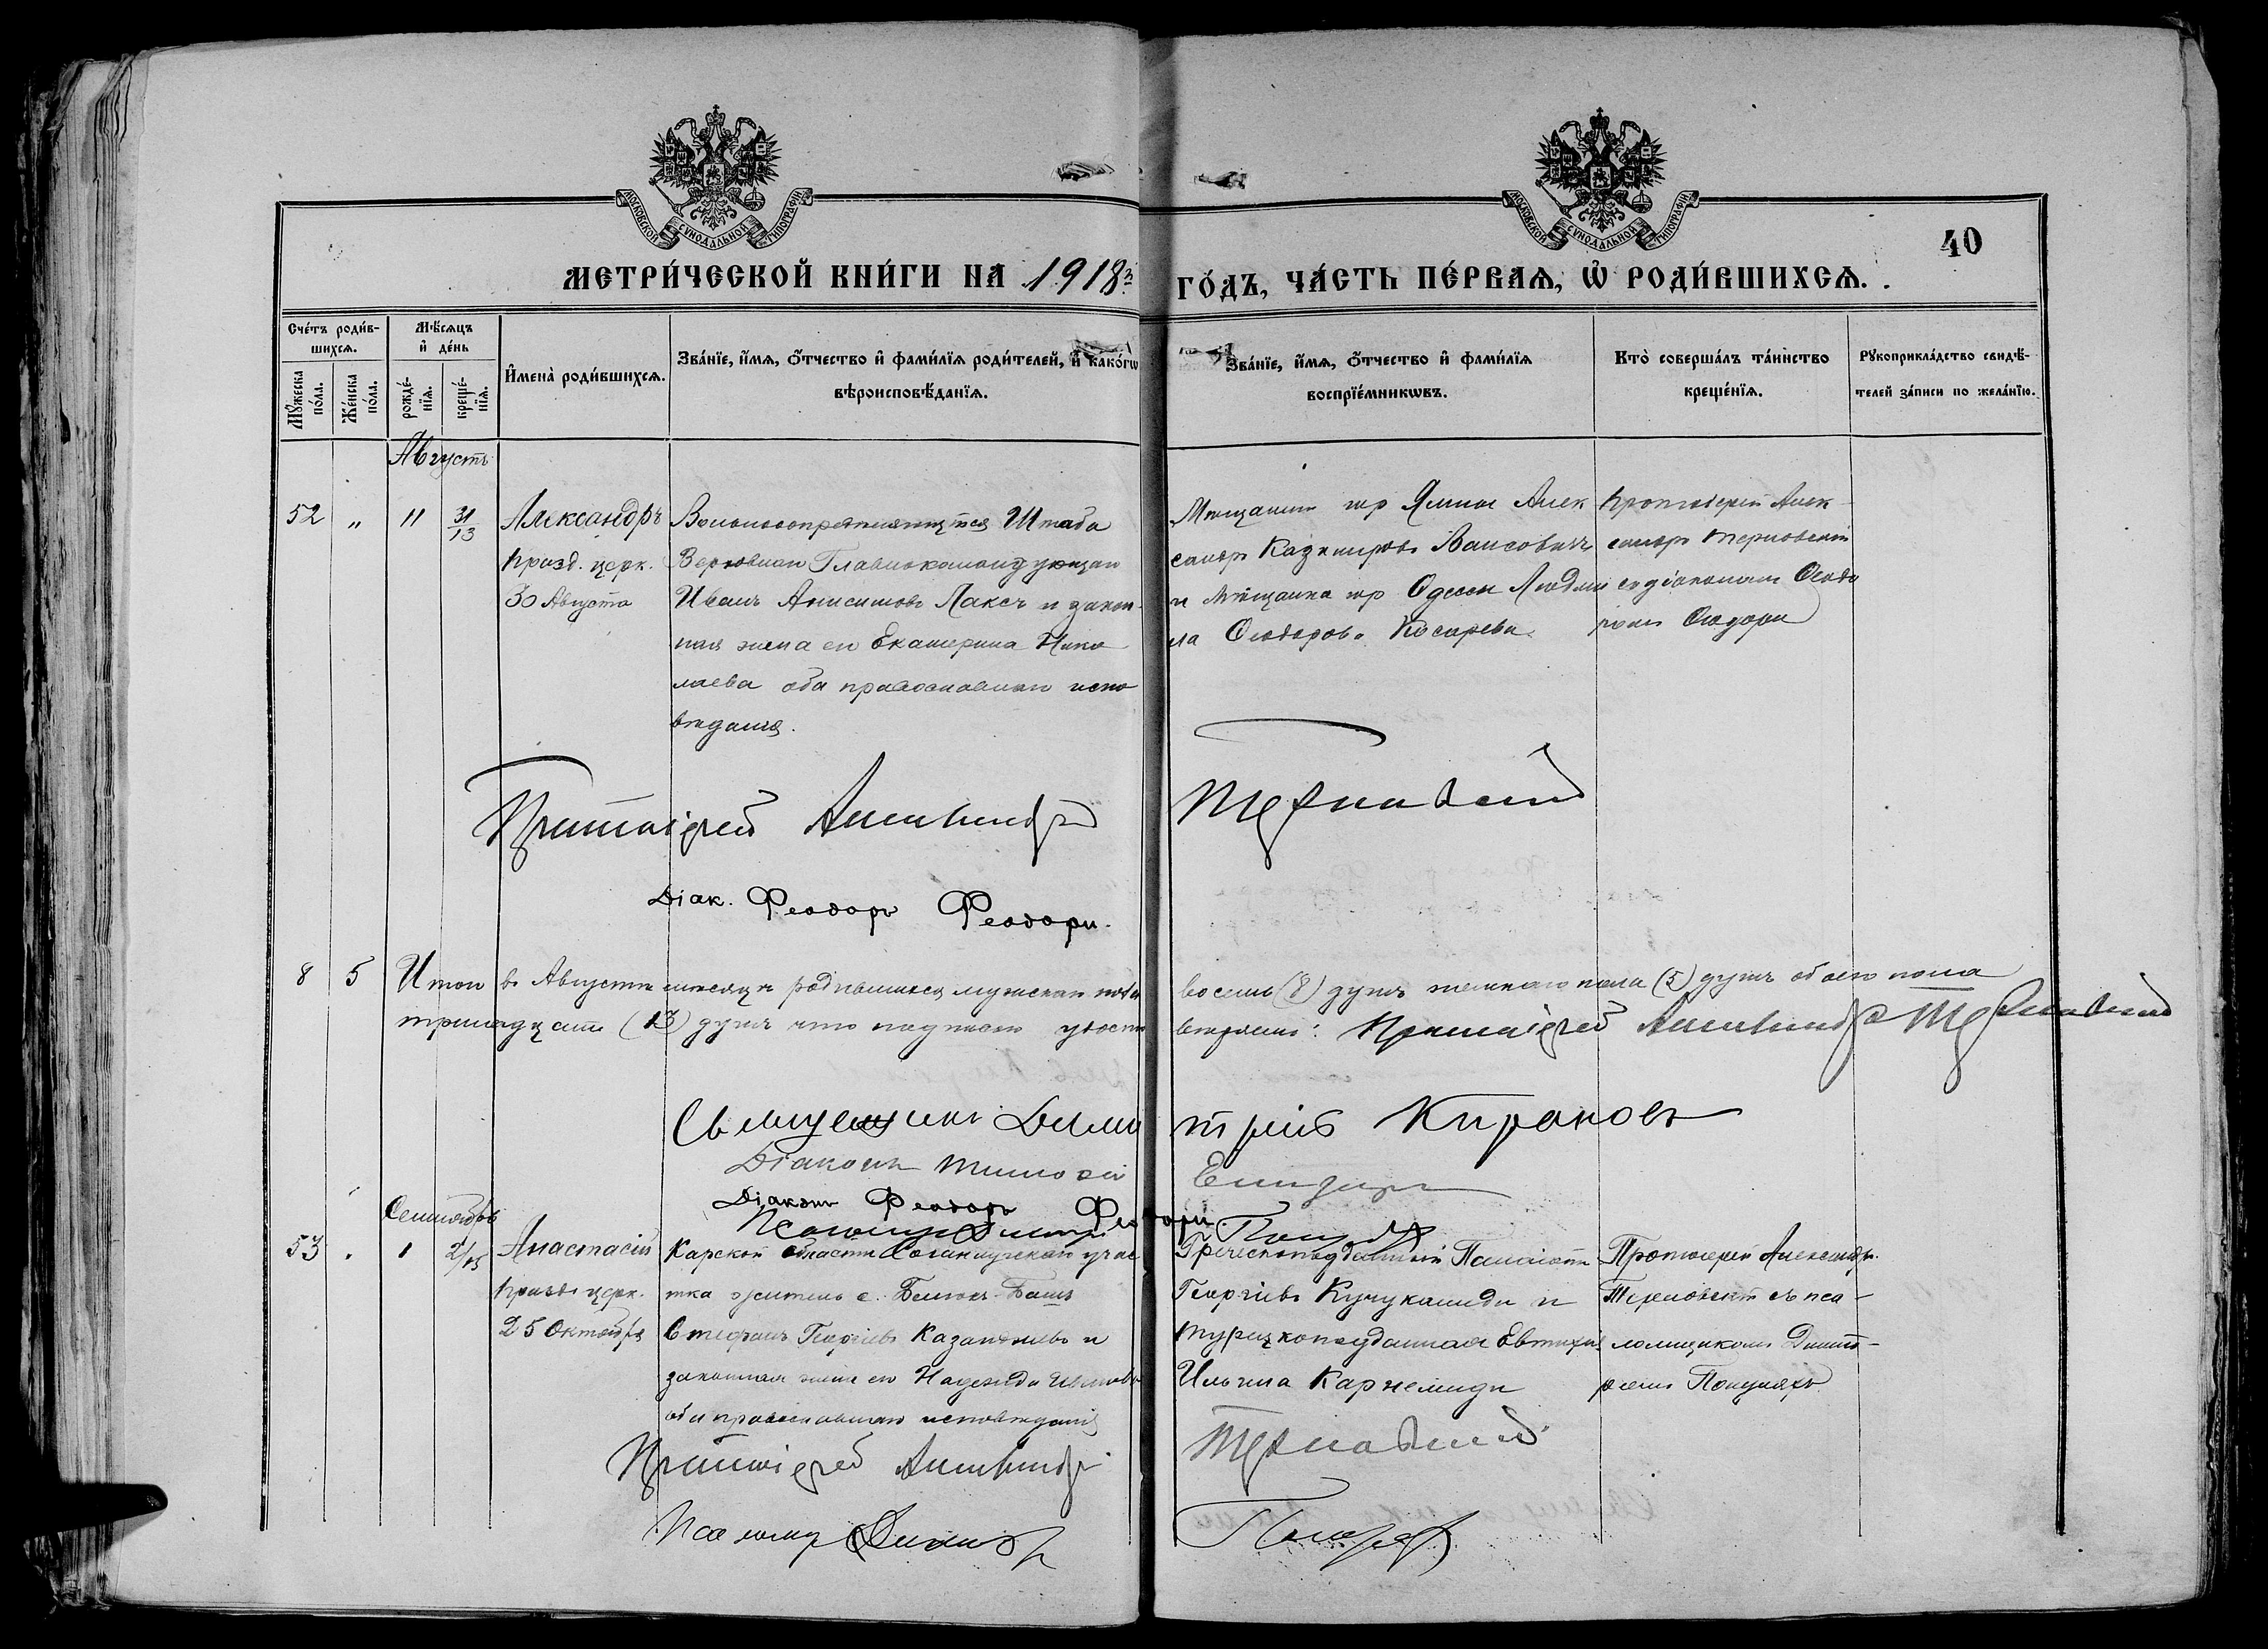 МОСКОВСКОЙ СѴНОДАЛЬНОЙ ТИПОГРАФІИ
МОСКОВСКОЙ СѴНОДАЛЬНОЙ ТИПОГРАФІИ
40
МЕТРИ́ЧЕСКОЙ КНИ́ГИ НА 1918й
ГО́ДЪ, ЧА́СТЬ ПЕ́РВАѦ, Ѡ҆ РОДИ́ВШИХСѦ.
Сче́тъ роди́в-
шихсѧ.
Мѣ́сѧцъ
и҆ де́нь
Мꙋ́жеска
по́ла.
Же́нска
по́ла.
рожде́-
нїѧ.
креще́-
нїѧ.
И҆мена̀ роди́вшихсѧ.
Зва́нїе, и҆́мѧ, ѻ҆́тчество и҆ фами́лїѧ роди́телей, и҆ како́гѡ
вѣроисповѣ́данїѧ.
Зва́нїе, и҆́мѧ, ѻ҆́тчество и҆ фами́лїѧ
воспрїе́мникѡвъ.
Кто̀ соверша́лъ та́инство
креще́нїѧ.
Рꙋкоприкла́дство свидѣ́-
телей за́писи по жела́нїю.
Августъ
52 " 11 31/13 Александръ
празд. церк.
30 Августа
Вольноопредѣляющійся Штаба
Верховнаго Главнокомандующаго
Иванъ Анисимовъ Лаксъ и закон-
ная жена его Екатерина Нико
лаева оба православнаго испо
вѣданія.
Мѣщанинъ гор Ялты Алек
сандръ Казимировъ
и мѣщанка гор Одессы Людми
ла Ѳеодорова Косарева
Протоіерей Алек-
сандръ Терновскій
съ діакономъ Ѳеодо
ромъ Ѳеодори
Протоіерей Александръ Терновскій
Діак. Феодоръ Феодори.
8 5 Итого въ Августѣ мѣсяцѣ родившихся мужскаго пола восемь (8) душъ женскаго пола (5) душъ обоего пола
тринадцать (13) душъ что подписью удостовѣряемъ: Протоіерей Александръ Терновскій
Священникъ Димитрій Кирановъ
Діаконъ Тимоѳей
Діаконъ Феодоръ Феодори
Сентябрь
53 " 1 2/15 Анастасій
празд. церк.
25 Октября
Карской области участ
тка житель с.
Стефанъ Георгіевъ Казанжіевъ и
законная жена его Надежда
оба православнаго исповѣданія
Греческоподданный Панаіотъ
Георгіевъ Кучукалиди и
турецкоподданная Евтихія
Ильина
Протоіерей Александръ
Терновскій съ пса-
ломщикомъ Димит-
ріемъ
Протоіерей Александръ Терновскій
Псаломщ Димитр